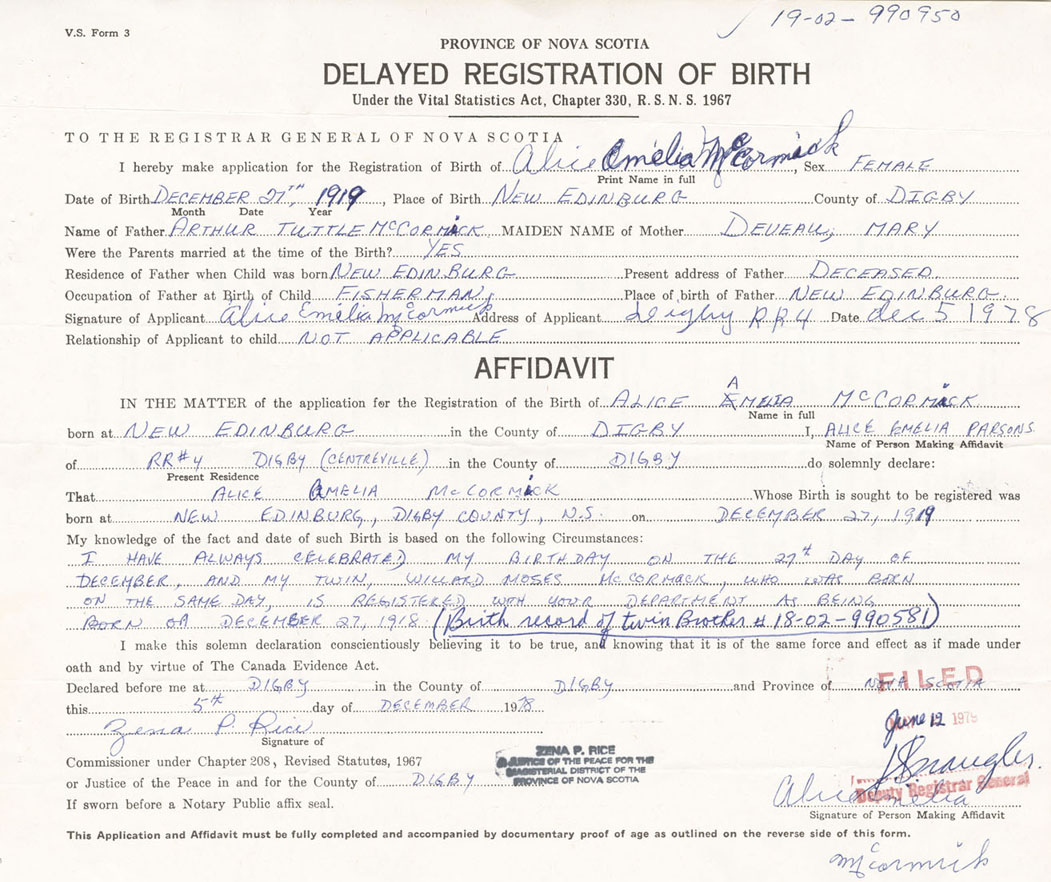 19-02-990950
V.S. Form 3
PROVINCE OF NOVA SCOTIA
DELAYED REGISTRATION OF BIRTH
Under the Vital Statistics Act, Chapter 330, R.S.N.S. 1967
TO THE REGISTRAR GENERAL OF NOVA SCOTIA
I hereby make application for the Registration of Birth of Alice Amelia McCormick, Sex FEMALE
Print Name in full
Date of Birth DECEMBER 27TH, 1919, Place of Birth NEW EDINBURG County of DIGBY
Month Date Year
Name of Father ARTHUR TUTTLE McCORMICK MAIDEN NAME of Mother DEVEAU, MARY
Were the Parents married at the time of the Birth? YES
Residence of Father when Child was born NEW EDINBURG Present address of Father DECEASED
Occupation of Father at Birth of Child FISHERMAN, Place of birth of Father NEW EDINBURG
Signature of Applicant Alice Emelia McCormick Address of Applicant Digby RR4 Date Dec 5 1978
Relationship of Applicant to child NOT APPLICABLE
AFFIDAVIT
A
IN THE MATTER of the application for the Registration of the Birth of ALICE EMELIA McCORMICK
Name in full
born at NEW EDINBURG in the County of DIGBY I, ALICE EMELIA PARSONS
Name of Person Making Affidavit
of RR#4 DIGBY (CENTREVILLE) in the County of DIGBY do solemnly declare:
Present Residence
That ALICE AMELIA McCORMICK Whose Birth is sought to be registered was
born at NEW EDINBURG, DIGBY COUNTY, N.S. on DECEMBER 27, 1919
My knowledge of the fact and date of such Birth is based on the following Circumstances:
I HAVE ALWAYS CELEBRATED MY BIRTHDAY ON THE 27th DAY OF
DECEMBER, AND MY TWIN, WILLARD MOSES McCORMACK, WHO WAS BORN
ON THE SAME DAY, IS REGISTERED WITH YOUR DEPARTMENT AS BEING
BORN ON DECEMBER 27, 1918 (Birth record of twin Brother # 18-02-990581)
I make this solemn declaration conscientiously believing it to be true, and knowing that it is of the same force and effect as if made under
oath and by virtue of The Canada Evidence Act.
Declared before me at DIGBY in the County of DIGBY and Province of NOVA SCOTIA
FILED
this 5th day of DECEMBER 1978
June 12 1979
Zena P. Rice
Signature of
Commissioner under Chapter 208, Revised Statutes, 1967
or Justice of the Peace in and for the County of DIGBY
If sworn before a Notary Public affix seal.
ZENA P. RICE
A JUSTICE OF THE PEACE FOR THE
MAGISTERIAL DISTRICT OF THE
PROVINCE OF NOVA SCOTIA
Deputy Registrar General
Alice Emelia
Signature of Person Making Affidavit
This Application and Affidavit must be fully completed and accompanied by documentary proof of age as outlined on the reverse side of this form.
McCormick